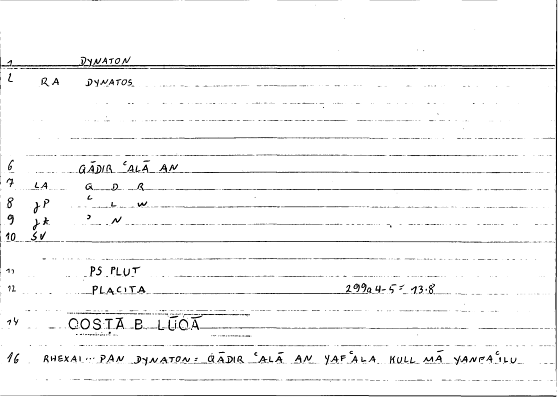 1 DYNATON
2 RA DYNATOS
6 QĀDIR ʿALĀ AN
7 LA Q D R
8 JP ʿ L W
9 JK ʾ N
10 SV
11 PS PLUT
12 PLACITA 299a4-5 = 13.8
14 QOSTĀ B. LŪQĀ
16 RHEXAI... PAN DYNATON = QĀDIR ʿALĀ AN YAFʿALA KULL MĀ YANFAʿILU